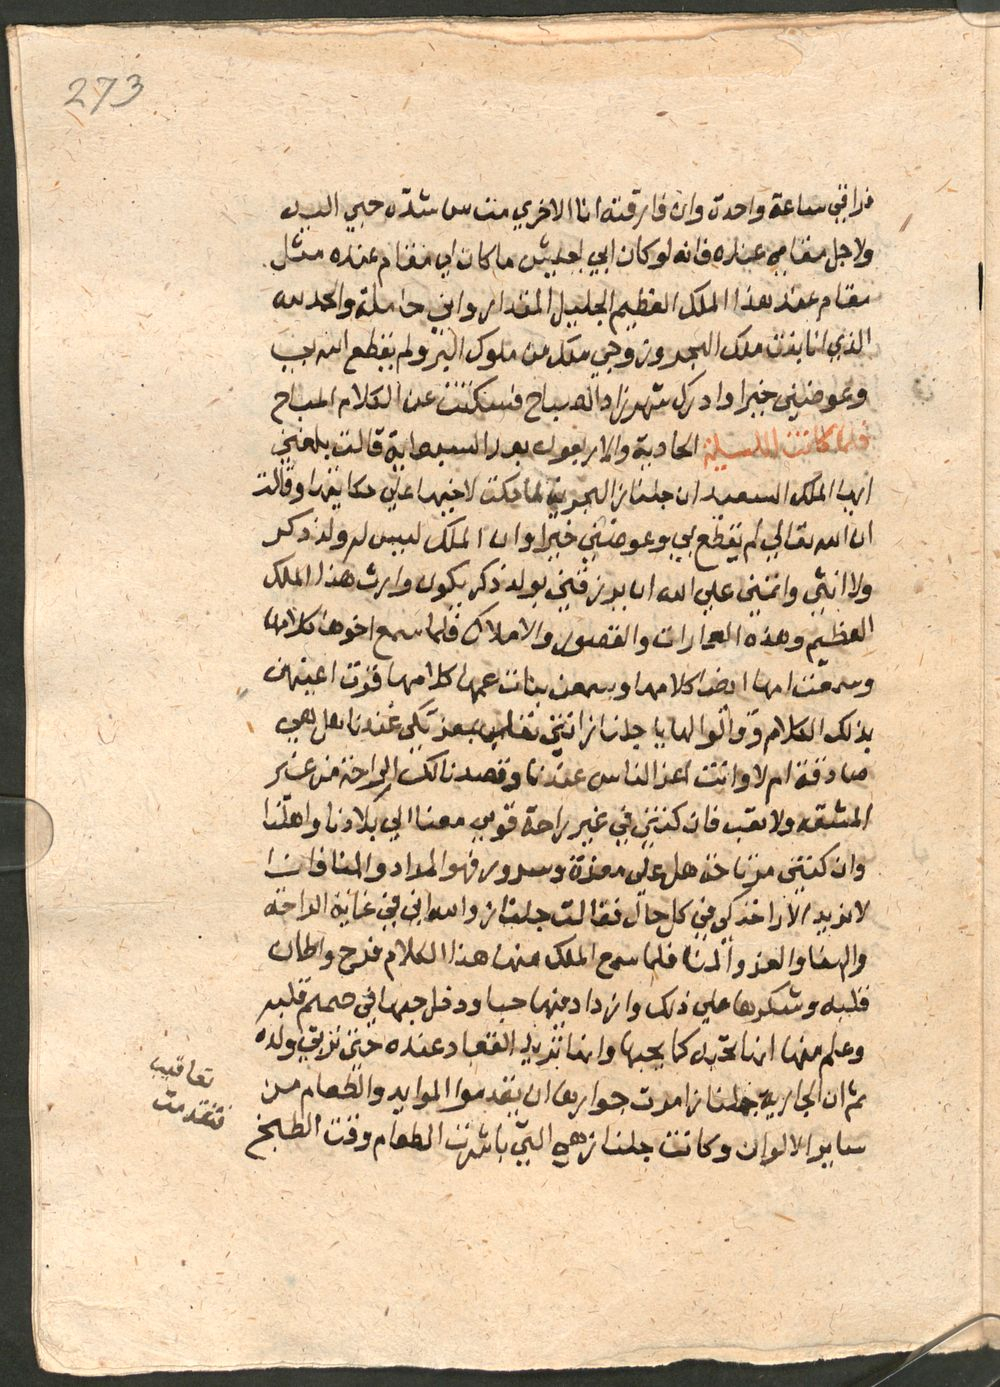 273
فراقني ساعة واحدة وان فارقته انا الاخري مت من شدة حبي اليه
ولاجل مقامي عنده فانه لو كان ابي يعيش ما كان لي مقام عنده مثل
مقام عند هذا الملك العظيم الجليل المقدار واني حاملة والحمد لله
الذي انا بنت ملك البحر وزوجي ملك من ملوك البر ولم يقطع الله بي
وعوضني خيرا وادرك شهرزاد الصباح فسكتت عن الكلام المباح
فلما كانت الليلة الحادية والاربعون بعد السبعماية قالت بلغني
ايها الملك السعيد ان جلناز البحرية لما حكت لاخيها علي حكايتها وقالت
ان الله تعالي لم يقطع بي وعوضني خيرا وان الملك ليس له ولد ذكر
ولا انثي واتمني علي الله ان يرزقني بولد ذكر يكون وارث هذا الملك
العظيم وهذه العمارات والقصور والاملاك فلما سمع اخوها كلامها
وسمعت امها ايضا كلامها وسمعن بنات عمها كلامها قرت اعينهن
بذلك الكلام وقالوا لها يا جلناز انتي تعلمي بمعزتكي عندنا هل هي
صادقة ام لا وانت اعز الناس عندنا وقصدنا لك الراحة من غير
المشقة ولا تعب فان كنتي في غير راحة قومي معنا الي بلادنا واهلنا
وان كنتي مرتاحة هل علي معزة وسرور فهو المراد والمنا فاننا
لا نريد الا راحتكي في كل حال فقالت جلناز والله اني في غاية الراحة
والهنا والعز والمنا فلما سمع الملك منها هذا الكلام فرح واطمان
قلبه وشكرها علي ذلك وازداد فيها حبا ودخل حبها في صميم قلبه
وعلم منها انها تحبه كما يحبها وانها تريد القعاد عنده حتي تري ولده
ثم ان الجارية جلناز امرت جواريها ان يقدموا الموايد والطعام من
ساير الالوان وكانت جلناز هي التي باشرت الطعام وقت الطبخ
فتقدمت